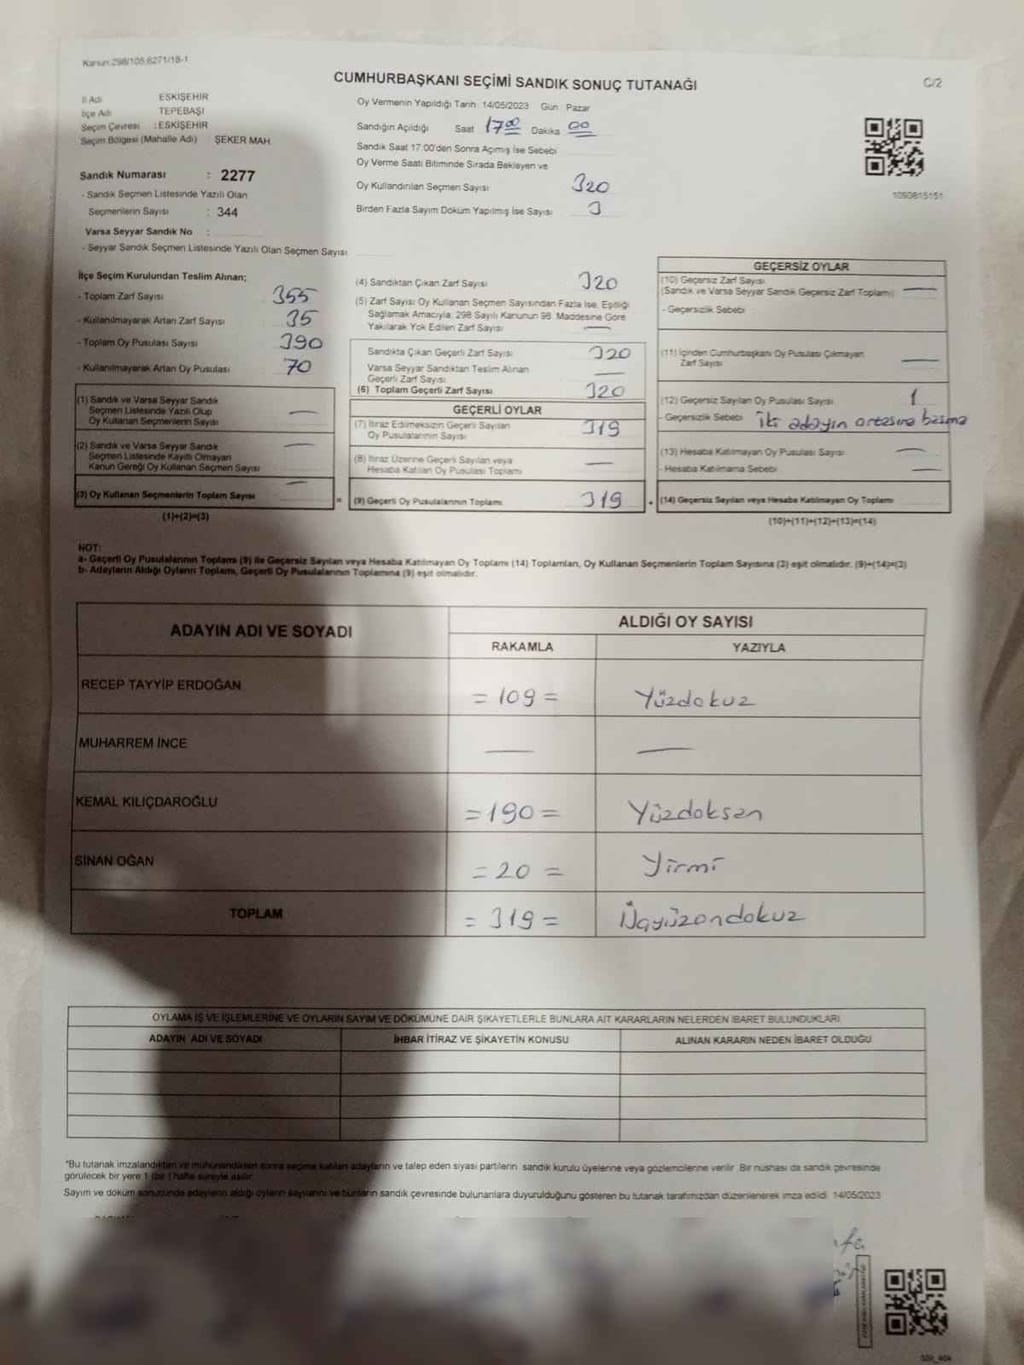 Kanun:298/105,6271/18-1
CUMHURBAŞKANI SEÇİMİ SANDIK SONUÇ TUTANAĞI
C/2
İl Adı ESKİŞEHİR
İlçe Adı TEPEBAŞI
Seçim Çevresi :ESKİŞEHİR
Seçim Bölgesi (Mahalle Adı) ŞEKER MAH.
Sandık Numarası : 2277
- Sandık Seçmen Listesinde Yazılı Olan
Seçmenlerin Sayısı : 344
Varsa Seyyar Sandık No :
- Seyyar Sandık Seçmen Listesinde Yazılı Olan Seçmen Sayısı
Oy Vermenin Yapıldığı Tarih: 14/05/2023 Gün: Pazar
Sandığın Açıldığı Saat 17:00 Dakika 00
Sandık Saat 17.00'den Sonra Açılmış İse Sebebi
Oy Verme Saati Bitiminde Sırada Bekleyen ve
Oy Kullandırılan Seçmen Sayısı 320
Birden Fazla Sayım Döküm Yapılmış İse Sayısı 3
1090815151
İlçe Seçim Kurulundan Teslim Alınan;
- Toplam Zarf Sayısı 355
- Kullanılmayarak Artan Zarf Sayısı 35
- Toplam Oy Pusulası Sayısı 390
- Kullanılmayarak Artan Oy Pusulası 70
(1) Sandık ve Varsa Seyyar Sandık
Seçmen Listesinde Yazılı Olup
Oy Kullanan Seçmenlerin Sayısı —
(2) Sandık ve Varsa Seyyar Sandık
Seçmen Listesinde Kayıtlı Olmayan
Kanun Gereği Oy Kullanan Seçmen Sayısı —
(3) Oy Kullanan Seçmenlerin Toplam Sayısı —
(1)+(2)=(3)
=
(4) Sandıktan Çıkan Zarf Sayısı 320
(5) Zarf Sayısı Oy Kullanan Seçmen Sayısından Fazla İse, Eşitliği
Sağlamak Amacıyla, 298 Sayılı Kanunun 98. Maddesine Göre
Yakılarak Yok Edilen Zarf Sayısı —
Sandıkta Çıkan Geçerli Zarf Sayısı 320
Varsa Seyyar Sandıktan Teslim Alınan
Geçerli Zarf Sayısı —
(6) Toplam Geçerli Zarf Sayısı 320
GEÇERLİ OYLAR
(7) İtiraz Edilmeksizin Geçerli Sayılan
Oy Pusulalarının Sayısı 319
(8) İtiraz Üzerine Geçerli Sayılan veya
Hesaba Katılan Oy Pusulası Toplamı —
(9) Geçerli Oy Pusulalarının Toplamı 319
GEÇERSİZ OYLAR
(10) Geçersiz Zarf Sayısı
(Sandık ve Varsa Seyyar Sandık Geçersiz Zarf Toplamı) —
- Geçersizlik Sebebi
(11) İçinden Cumhurbaşkanı Oy Pusulası Çıkmayan
Zarf Sayısı —
(12) Geçersiz Sayılan Oy Pusulası Sayısı 1
- Geçersizlik Sebebi iki adayın ortasına basma
(13) Hesaba Katılmayan Oy Pusulası Sayısı —
- Hesaba Katılmama Sebebi —
(14) Geçersiz Sayılan veya Hesaba Katılmayan Oy Toplamı
(10)+(11)+(12)+(13)=(14)
NOT:
a- Geçerli Oy Pusulalarının Toplamı (9) ile Geçersiz Sayılan veya Hesaba Katılmayan Oy Toplamı (14) Toplamları, Oy Kullanan Seçmenlerin Toplam Sayısına (3) eşit olmalıdır. (9)+(14)=(3)
b- Adayların Aldığı Oyların Toplamı, Geçerli Oy Pusulalarının Toplamına (9) eşit olmalıdır.
ADAYIN ADI VE SOYADI
ALDIĞI OY SAYISI
RAKAMLA YAZIYLA
RECEP TAYYİP ERDOĞAN =109= Yüzdokuz
MUHARREM İNCE — —
KEMAL KILIÇDAROĞLU =190= Yüzdoksan
SİNAN OĞAN =20= Yirmi
TOPLAM =319= Üçyüzondokuz
OYLAMA İŞ VE İŞLEMLERİNE VE OYLARIN SAYIM VE DÖKÜMÜNE DAİR ŞİKAYETLERLE BUNLARA AİT KARARLARIN NELERDEN İBARET BULUNDUKLARI
ADAYIN ADI VE SOYADI İHBAR İTİRAZ VE ŞİKAYETİN KONUSU ALINAN KARARIN NEDEN İBARET OLDUĞU
*Bu tutanak imzalandıktan ve mühürlendikten sonra seçime katılan adayların ve talep eden siyasi partilerin sandık kurulu üyelerine veya gözlemcilerine verilir. Bir nüshası da sandık çevresinde
görülecek bir yere 1 (bir) hafta süreyle asılır.
Sayım ve döküm sonucunda adayların aldığı oyların sayılarını ve bunların sandık çevresinde bulunanlara duyurulduğunu gösteren bu tutanak tarafımızdan düzenlenerek imza edildi. 14/05/2023